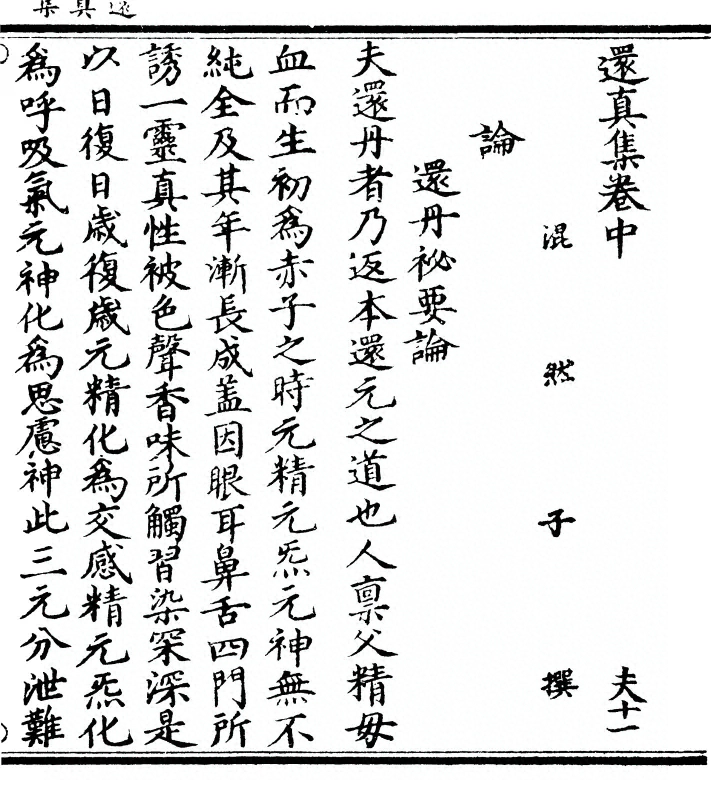 還真集卷中
夫十一
混然子撰
論
還丹祕要論
夫還丹者乃返本還元之道也人禀父精毋
血而生初為赤子之時元精元炁元神無不
純全及其年漸長成蓋因眼耳鼻舌四門所
誘一靈真性被色聲香味所觸習染罙深是
以日復日歲復歲元精化為交感精元炁化
為呼吸氣元神化為思慮神此三元分泄難
還真集